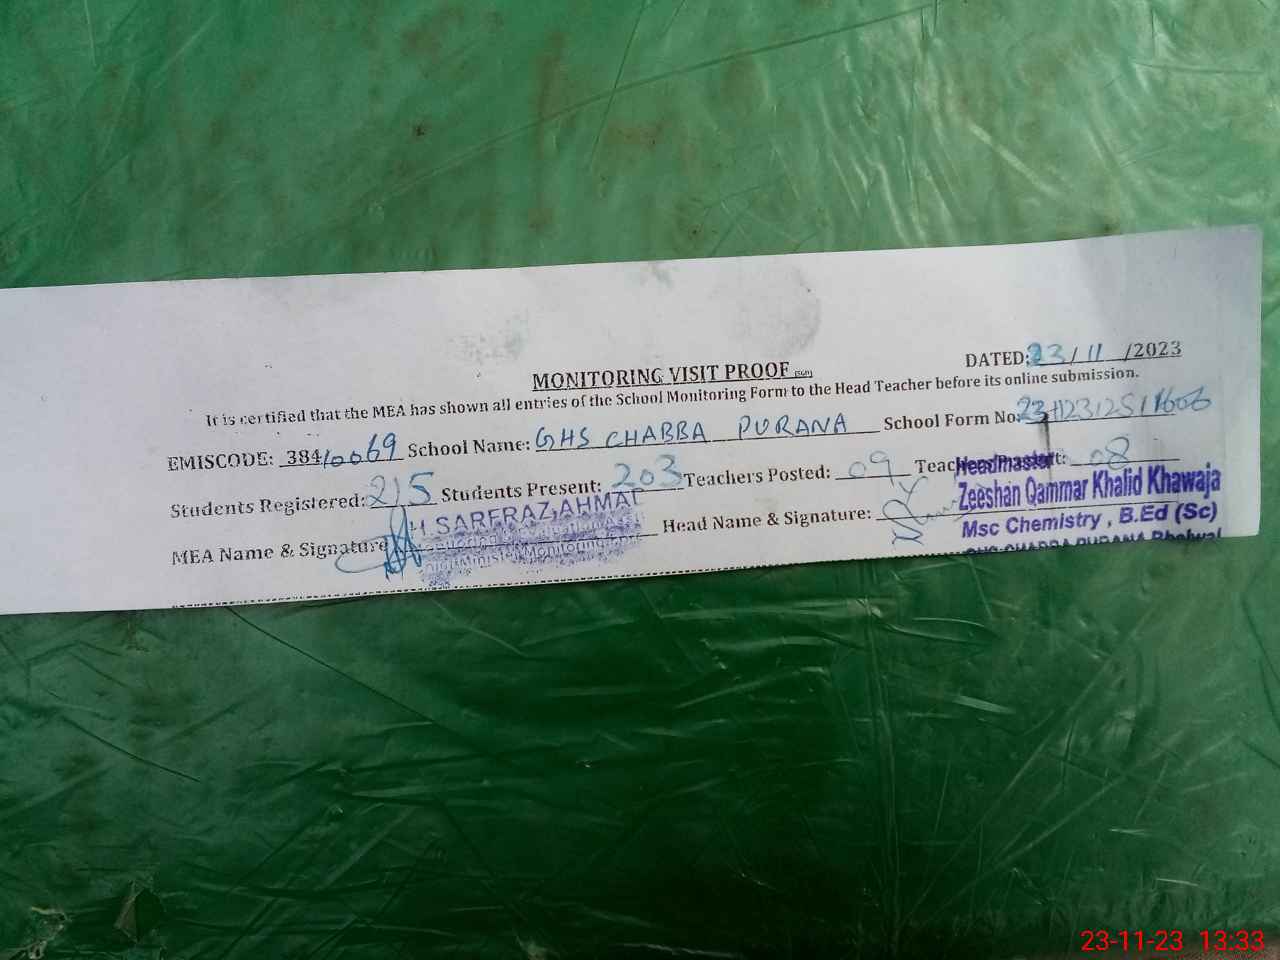 MONITORING VISIT PROOF
DATED: 23/11/2023
It is certified that the MEA has shown all entries of the School Monitoring Form to the Head Teacher before its online submission.
EMISCODE: 38410069 School Name: GHS CHABBA PURANA School Form No:
Students Registered: 215 Students Present: 203 Teachers Posted: 09 08
MEA Name & Signature Head Name & Signature:
H.SARFRAZ AHMAD
Headmaster
Zeeshan Qammar Khalid Khawaja
Msc Chemistry , B.Ed (Sc)
GHS CHABBA PURANA Bhalwal
23-11-23 13:33